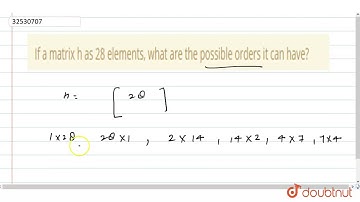 32530707
If a matrix h as 28 elements, what are the possible orders it can have?
h = [ 28 ]
1 × 28, 28 × 1, 2 × 14, 14 × 2, 4 × 7, 7 × 4
doubtnut